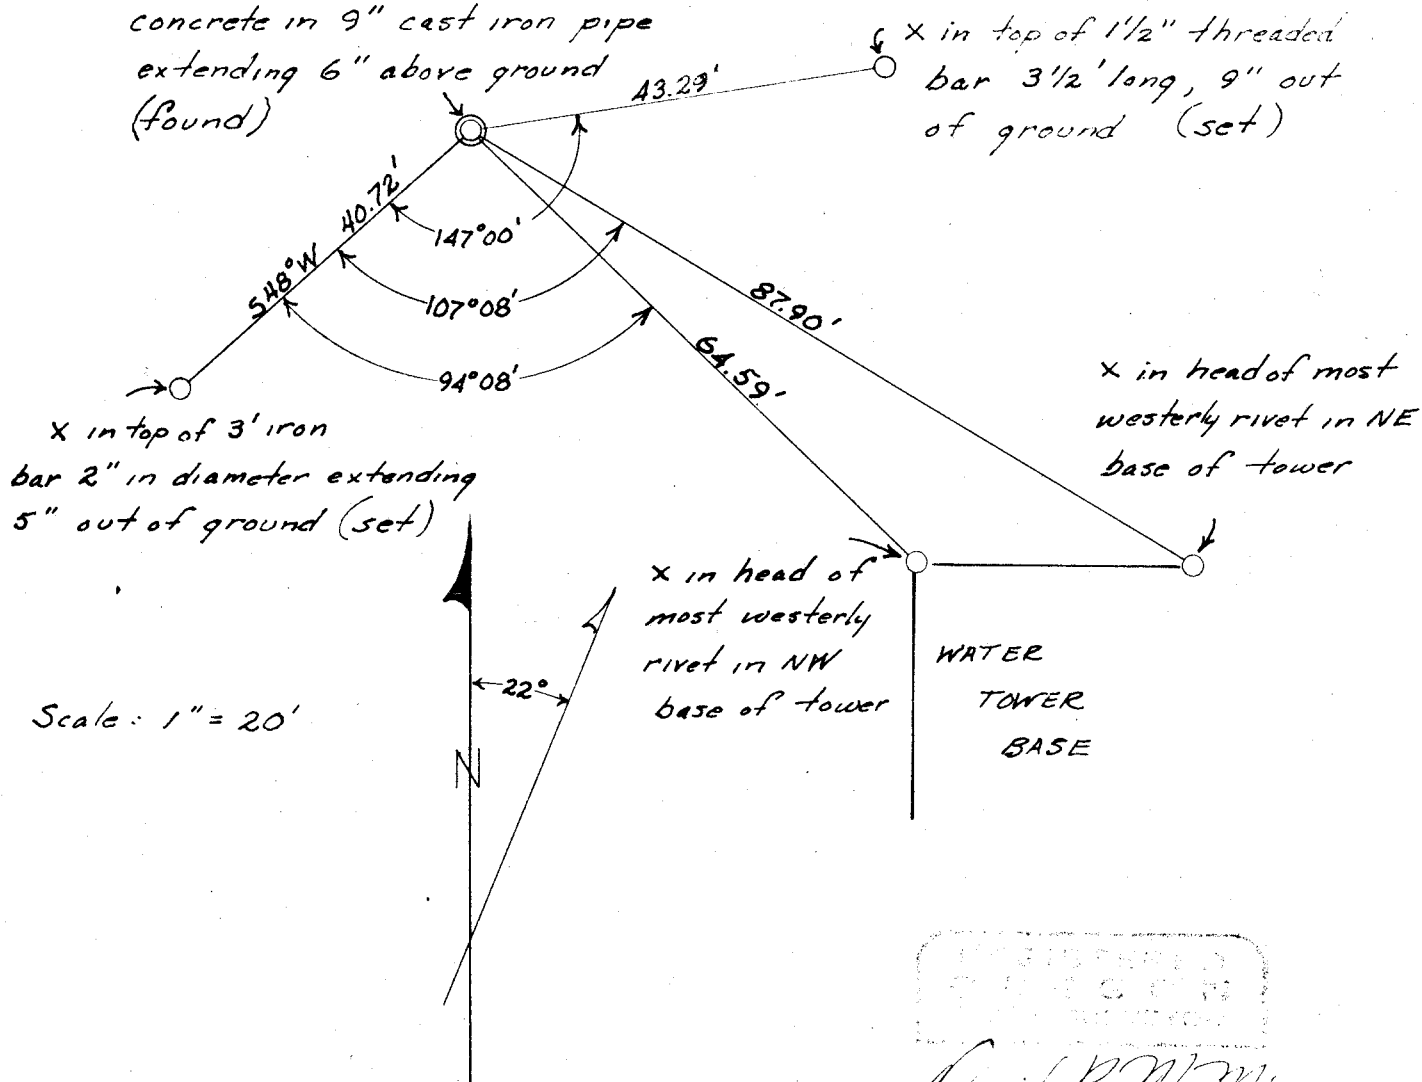 concrete in 9" cast iron pipe
extending 6" above ground
(found)
x in top of 1 1/2" threaded
bar 3 1/2' long, 9" out
of ground (set)
43.29'
40.72'
S48°W
147°00'
107°08'
94°08'
87.90'
64.59'
x in top of 3' iron
bar 2" in diameter extending
5" out of ground (set)
x in head of most
westerly rivet in NE
base of tower
x in head of
most westerly
rivet in NW
base of tower
WATER
TOWER
BASE
22°
N
Scale: 1" = 20'